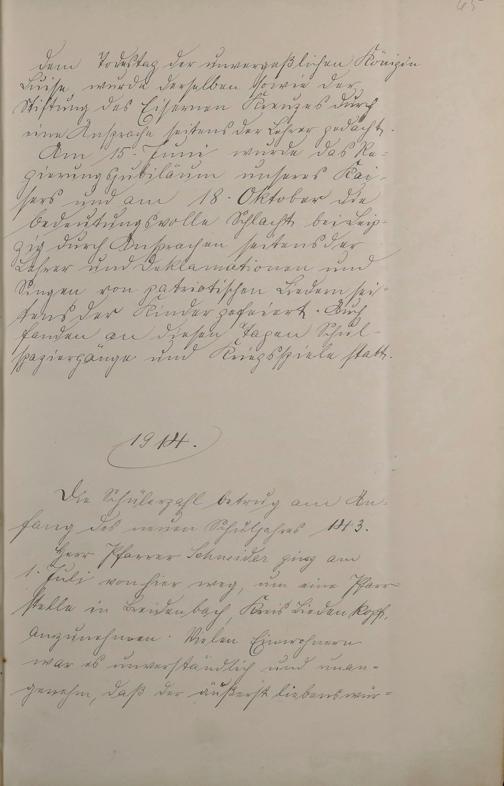 45
dem Todestag der unvergeßlichen Königin
Luise wurde derselben sowie der
Stiftung des Eisernen Kreuzes durch
eine Ansprache seitens der Lehrer gedacht.
Am 15. Juni wurde das Re-
gierungsjubiläum unseres Kai-
sers und am 18. Oktober die
bedeutungsvolle Schlacht bei Leip-
zig durch Ansprachen seitens der
Lehrer und Deklamationen und
Singen von patriotischen Liedern sei-
tens der Kinder gefeiert. Auch
fanden an diesen Tagen Schul-
spaziergänge und Kriegsspiele statt.
1914.
Die Schülerzahl betrug am An-
fang des neuen Schuljahres 143.
Herr Pfarrer Schneider ging am
1. Juli von hier weg, um eine Pfarr-
stelle in Breidenbach, Kreis Biedenkopf,
anzunehmen. Vielen Einwohnern
war es unverständlich und unan-
genehm, daß der äußerst liebenswür-